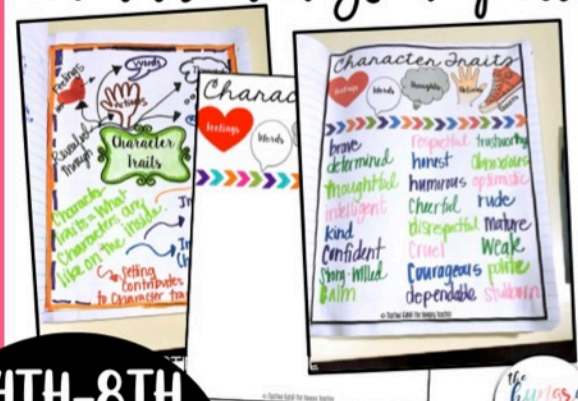 Feelings
Words
Actions
Revealed
Through
Character
Traits
Character
Traits = What
Characters are
like on the inside.
Setting
Contributes
to Character tra
Charac
feelings
Words
Character Traits
feelings
Words
Thoughts
Actions
brave
determined
thoughtful
intelligent
kind
Confident
Strong-willed
Calm
respectful
honest
humorous
Cheerful
disrespectful
Cruel
Courageous
dependable
trustworthy
Obnoxious
optimistic
rude
Mature
Weak
polite
stubborn
4TH-8TH
the